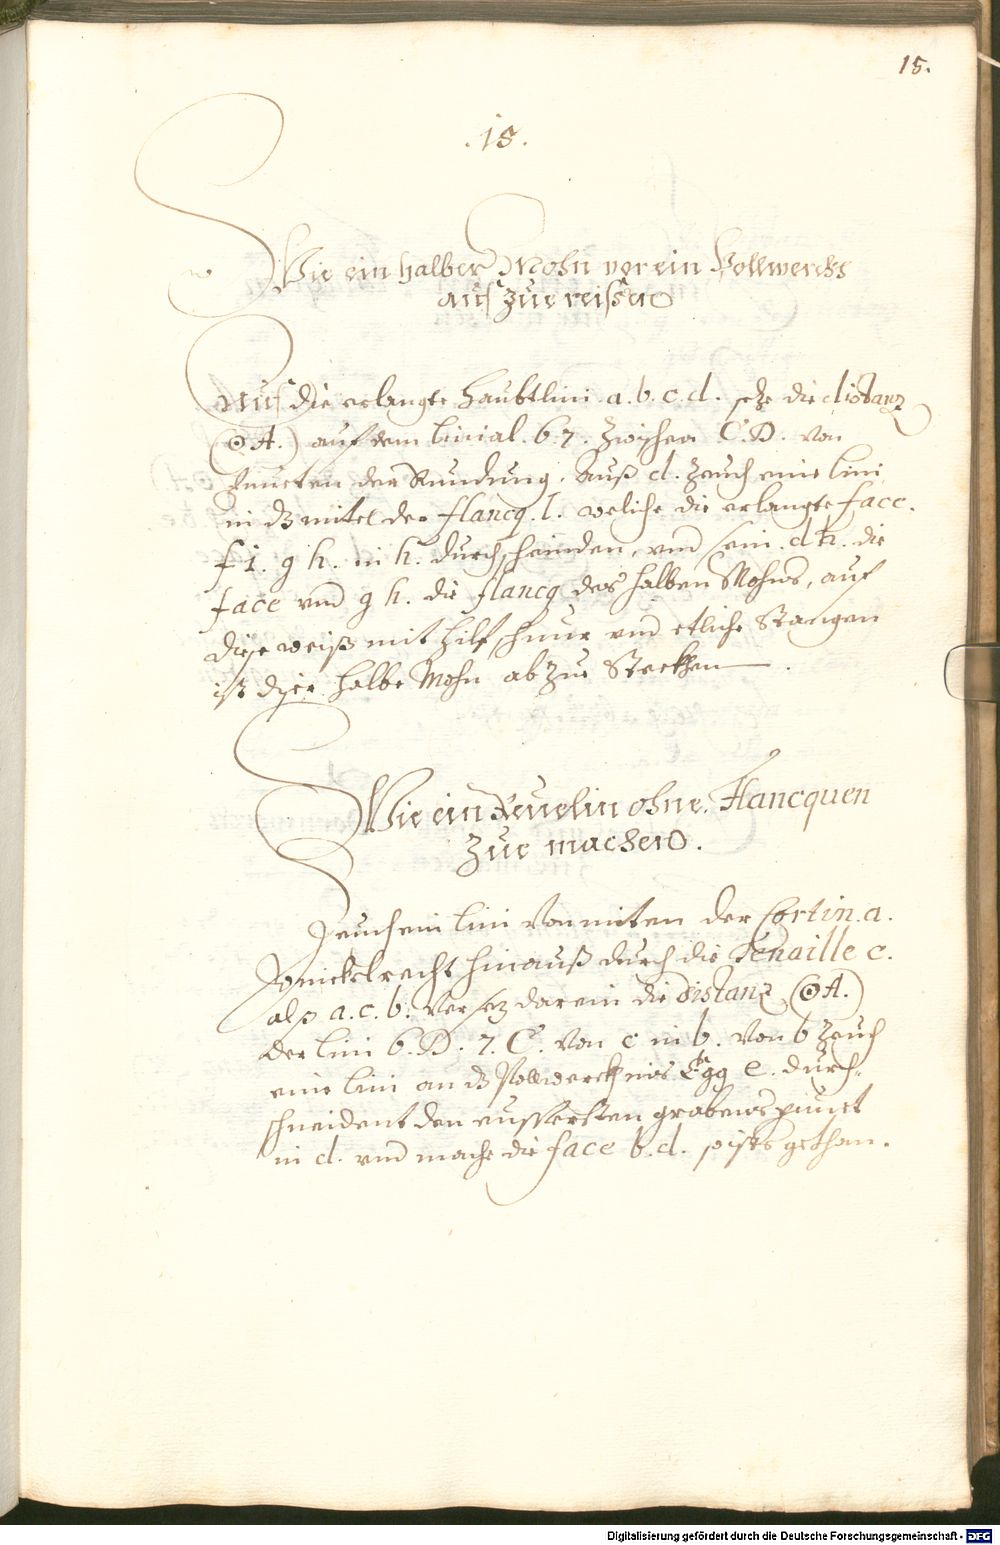 15.
.15.
Wie ein halber Mohn vor ein Pollwerckhs
auszue reissen
Aus die erlangte Haubtlini a. b. c. d. setze die distanz
(⊙A.) auf dem linial. 6. 7. zwischen C. D. von
Puncten der Rundung, auß d. zeuch eine lini
in dz mitel der flancq. l. weliche die erlangte face.
f i. g h. in h. durchschneiden, und sein. d h. die
face und g h. die flancq des halben Mohns, auf
diese weiß mit hilf schnur und etliche Stangen
ist der halbe Mohn abzue Steckhen.
Wie ein Revelin ohne Flancquen
zue machen.
Zeuch ein lini von miten der Cortin. a.
Winckelrecht hinauß durch die Tenaille c.
als a. c. b. versetz darein die distanz (⊙A.)
der lini 6. D. 7. C. von c in b. von b zeuch
eine lini an dz Pollwerckhs Egg e. durch-
schneident den eussersten grabens punct
in d. und mache die face b. d. so ists gethan.
Digitalisierung gefördert durch die Deutsche Forschungsgemeinschaft - DFG